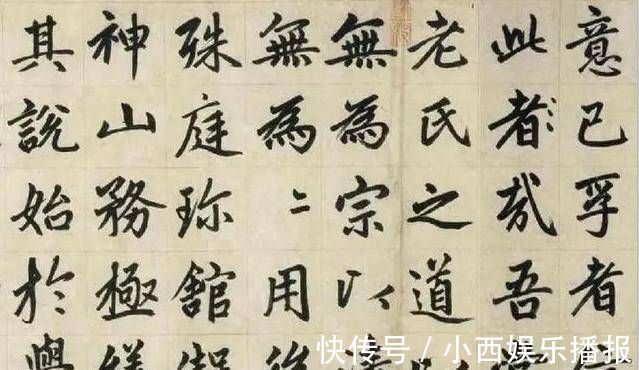 意已孚者
此者哉吾
老氏之道
無為宗以
無為〻用
殊庭珎舘
神山務極
其說始於
快传号 / 小西娱乐播报